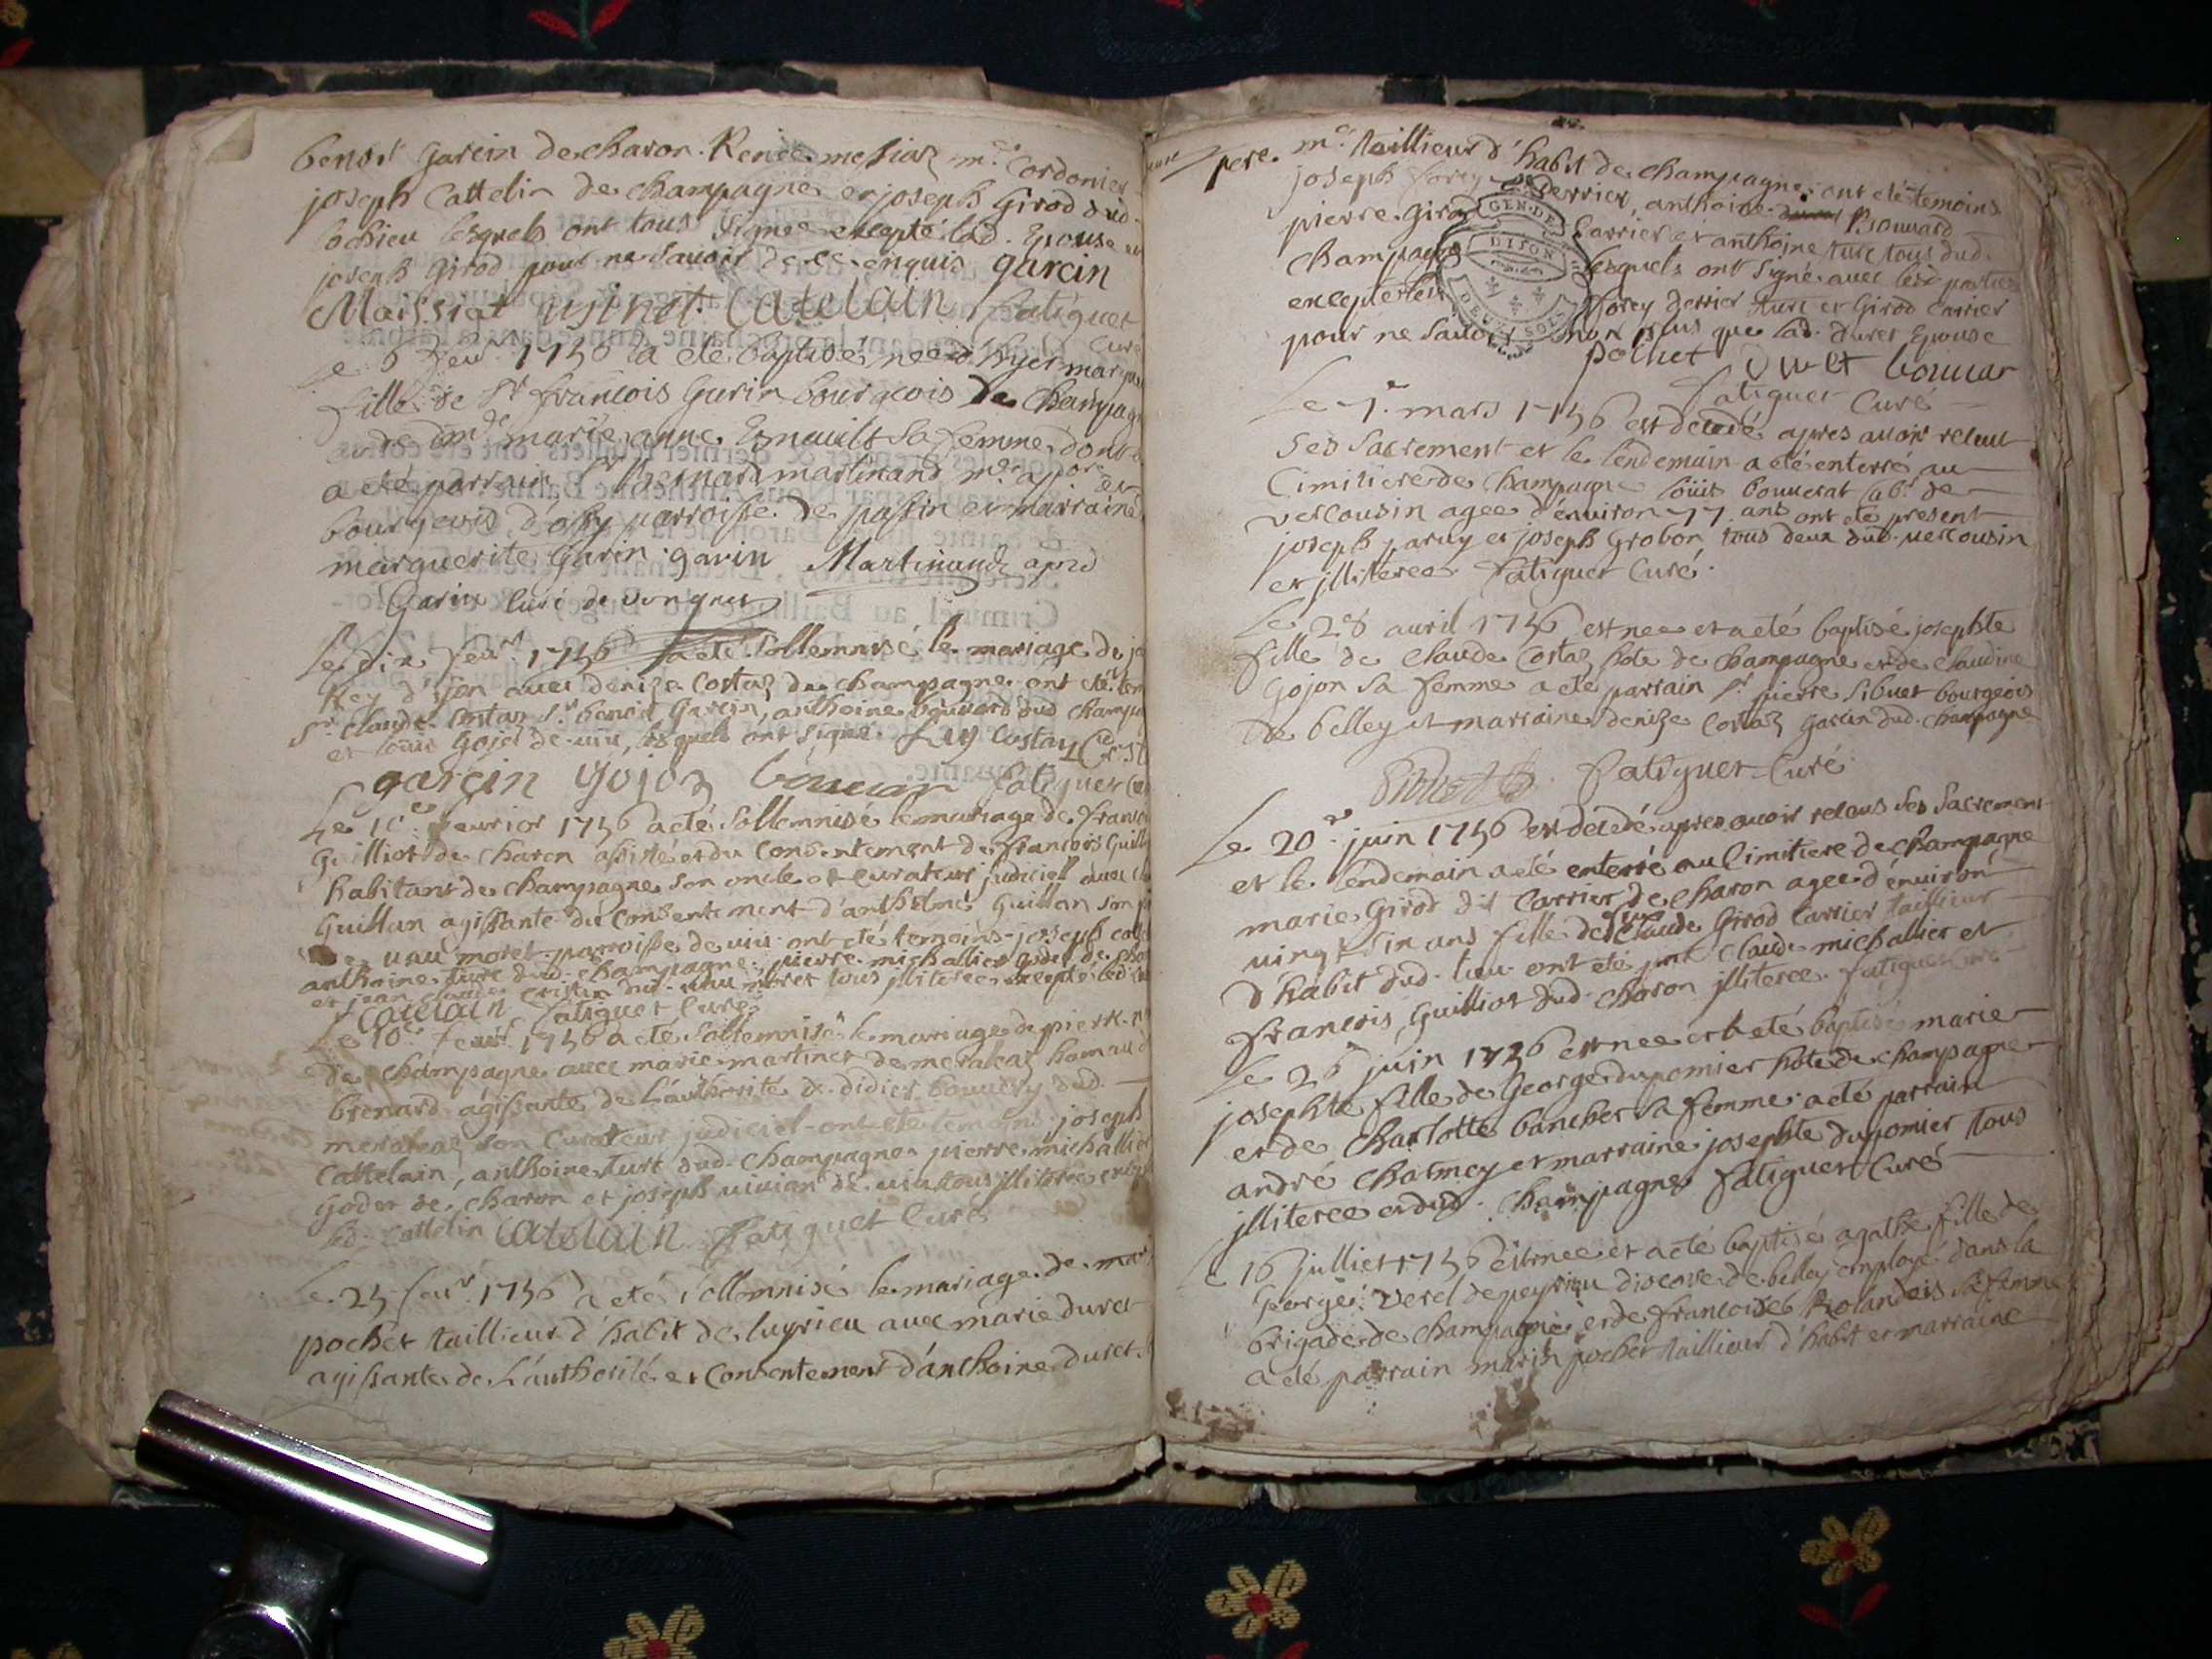 benoit Garcin de charon. Renée messiaz m.e Cordonier
joseph Cattelin de champagne et joseph Girod dud.
lesquels ont tous signée excepté lad. Epouse et
joseph Girod pour ne savoir de ce enquis garcin
Maissiat Catelain fatiguet
Curé
Le 6 feu.r 1756 a eté baptisé née d. hyer
fille de S.r françois Garin bourgeois De Champag
et de dm.e marie anne Esnault sa femme dont
a eté parrain S.r Bernard martinand m.e
bourgeois d'ossy parroisse de passin et marraine
marguerite Garin. garin Martinand
Garin Curé de vongnes
Le dix feu.r 1756 a eté sollemnisé le mariage de
Rey d'yon auec denize Costaz de champagne ont eté
S.r claude Costaz S.r benoit Garcin, anthoine bouuard dud champ
et louis Gojoz de uiu, lesquels ont signé. Rey Costaz
garcin gojoz bouuar fatiguet
Le feurier 1756 a eté sollemnisé le mariage de
Guilliot de charon assisté et du Consentement de francois Guill
habitant de champagne son oncle et curateur judiciel auec
Guillan agissante du Consentement d'anthelme Guillan son
de uau moret parroisse de uiu ont eté temoins joseph
anthoine turc dud. champagne, pierre michallier godet de
et jean dud. uau moret tous illiteree excepté led.
Catelain fatiguet Curé
Le 10.e feur. 1756 a eté sollemnisé le mariage de pierre
de champagne auec marie martinet de meraleaz hameau
brenard agissante de L'authorité de didier bouuery dud.
meraleaz son Curateur judiciel ont eté temoins joseph
Cattelain, anthoine turc dud. champagne pierre michallier
godet de charon et joseph uiuian de uiu tous illiteree
led. Cattelin Catelain fatiguet Curé
Le 25 feur. 1756 a eté sollemnisé le mariage de
pochet taillieur d'habit de luyrieu auec marie duret
agissante de L'authorité et Consentement d'anthoine duret
pere. m.e taillieur d'habit de champagne ont eté temoins
joseph forey derrier, anthoine Bouuard
pierre Girod Carrier et anthoine turc tous dud.
champagne lesquels ont signé auec les parties
excepté les forey derrier turc et Girod Carrier
pour ne sauoir non plus que lad. duret Epouse
pochet Duret bouuar
fatiguet Curé
Le 7.e mars 1756 est decedé apres auoir receut
Ses Sacrement et le lendemain a eté enterré au
Cimitiere de Champagne louis bouuerat lab.r de
uercousin agee d'enuiron 77 ans ont eté present
joseph paruy et joseph Grobon tous deux dud. uercousin
et illiteree fatiguet Curé.
Le 28 auril 1756 est nee et a eté baptisé josephte
fille de Claude Costaz hote de champagne et de claudine
Gojon sa femme a eté parrain S.r pierre Sibuet bourgeois
de belley et marraine denize Costaz Garcin dud. champagne
Sibuet fatiguet Curé
Le 20.e juin 1756 est decedé apres auoir receus ses sacrement
et le lendemain a eté enterré au Cimitiere de champagne
marie Girod dit Carrier de Charon agee d'enuiron
uingt six ans fille de feu Claude Girod Carrier taillieur
d'habit dud. lieu ont eté claude michallier et
francois Guilliot dud. charon illiteree. fatiguet Curé
Le 26 juin 1756 est nee et a eté baptisé marie
josephte fille de George dupomier hote de champagne
et de Charlotte bancher sa femme a eté parrain
andré charmey et marraine josephte dupomier tous
illiteree et dud. champagne fatiguet Curé
Le 16 julliet 1756 est nee et a eté baptisé agathe fille de
George Verd de peyrieu diocese de belley employé dans la
brigade de champagne et de francoise Rolandeis sa femme
a eté parrain marin pochet taillieur d'habit et marraine
GEN. DE
DIJON
DEUX SOLS